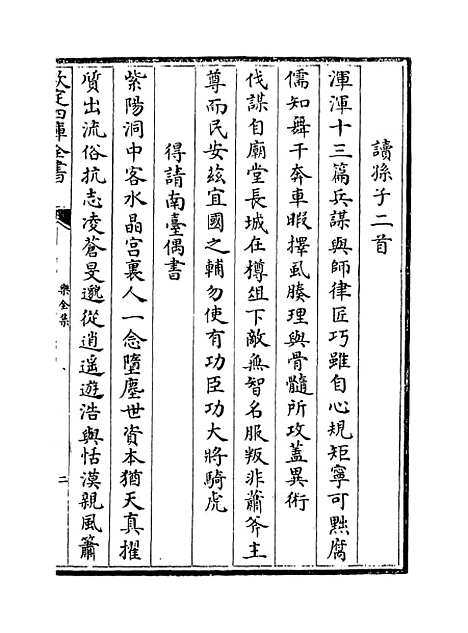 讀孫子二首
渾渾十三篇兵謀與師律匠巧雖自心規矩寧可黜腐
儒知舞干奔車暇擇虱腠理與骨髓所攻蓋異術
伐謀自廟堂長城在樽俎下敵無智名服叛非蕭斧主
尊而民安兹宜國之輔勿使有功臣功大將騎虎
得請南臺偶書
紫陽洞中客水晶宫裏人一念墮塵世資本猶天真擢
質出流俗抗志凌蒼旻邈從逍遥遊浩與恬漠親風簫
欽定四庫全書
樂全集
二